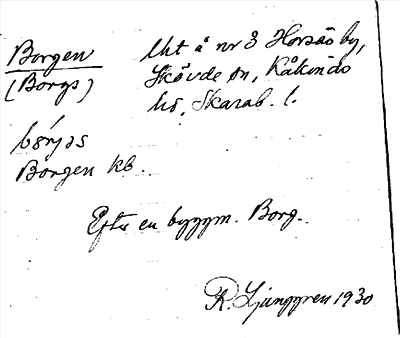 Borgen Uht å nr 3 Horsås by,
(Borgs) Skövde sn, Kåkinds
hd, Skarab. l.
börjəs
Borgen kb.
Efter en byggm. Borg.
R. Ljunggren 1930